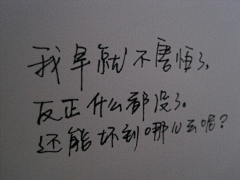 我早就不害怕了。
反正什么都没了。
还能坏到哪儿去呢？